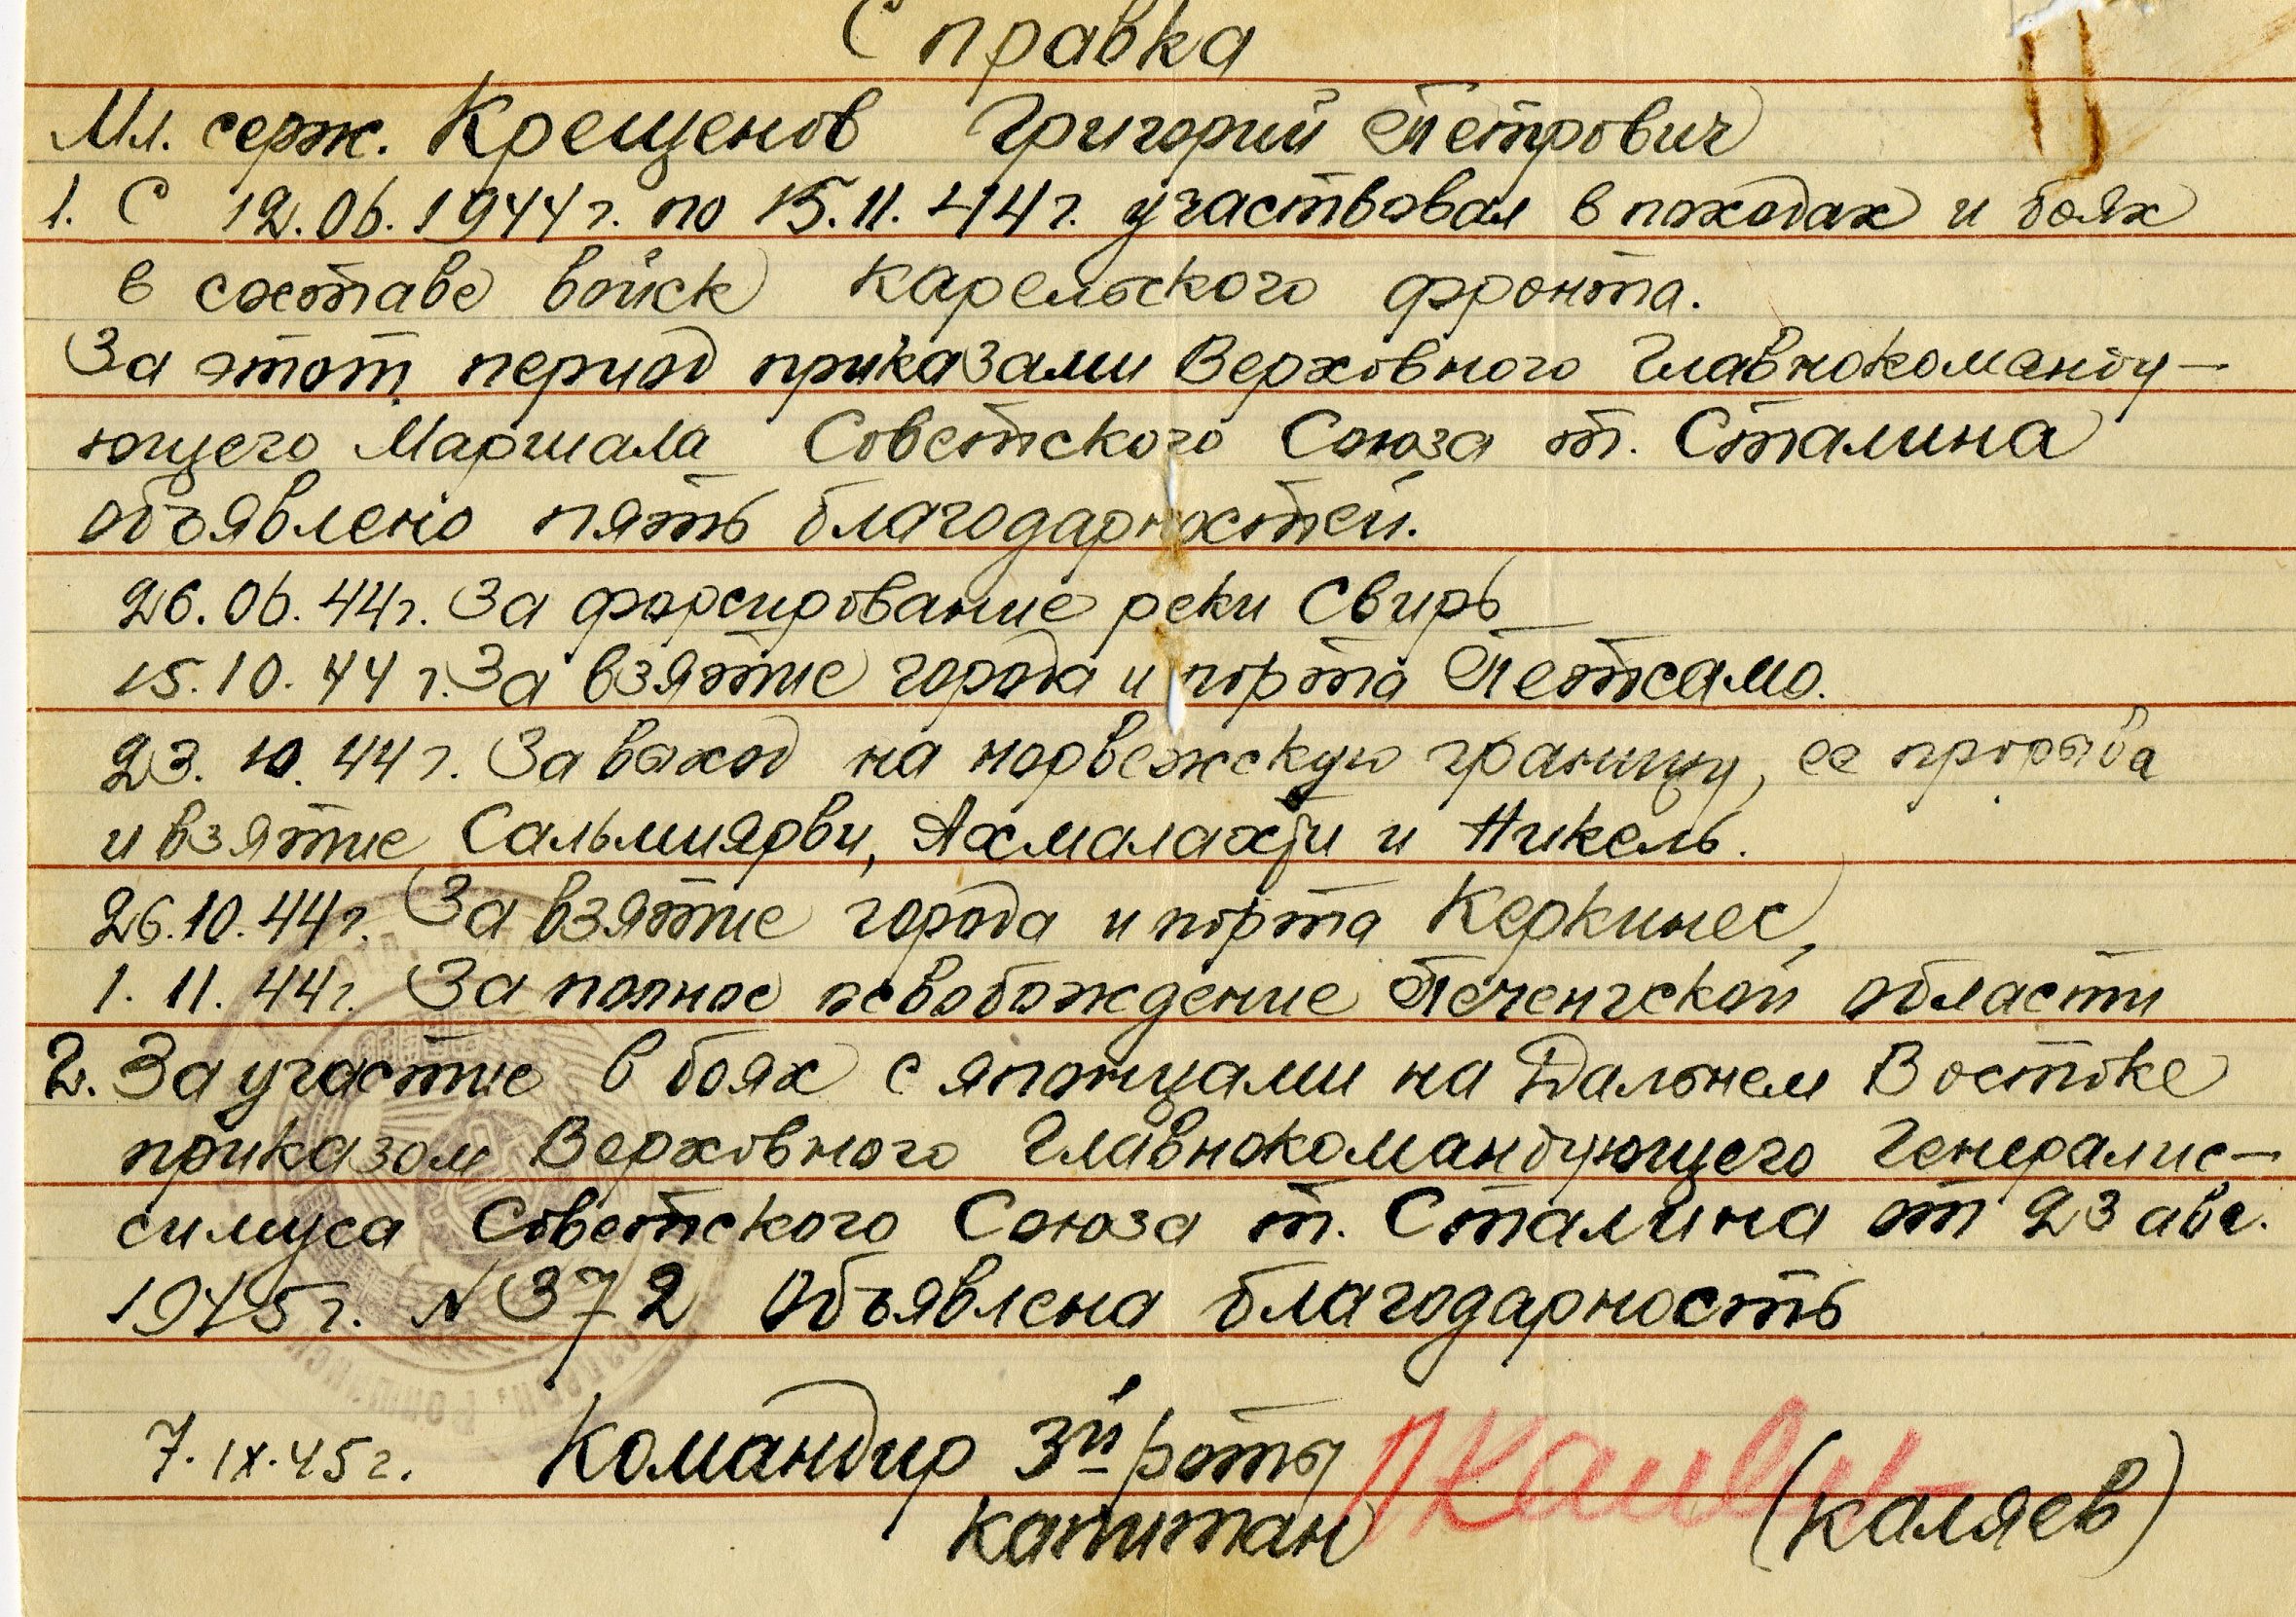 Справка
Мл. серж. Крещенов Григорий Петрович
1. С 12.06.1944 г. по 15.11.44 г. участвовал в походах и боях
в составе войск Карельского фронта.
За этот период приказами Верховного Главнокоманду-
ющего Маршала Советского Союза т. Сталина
объявлено пять благодарностей.
26.06.44 г. За форсирование реки Свирь
15.10.44 г. За взятие города и порта Петсамо.
23.10.44 г. За выход на норвежскую границу, ее прорыва
и взятие Сальмиярви, Ахмалахти и Никель.
26.10.44 г. За взятие города и порта Керкинес,
1.11.44 г. За полное освобождение Печенгской области
2. За участие в боях с японцами на Дальнем Востоке
приказом Верховного Главнокомандующего Генералис-
симуса Советского Союза т. Сталина от 23 авг.
1945 г. N 372 Объявлена благодарность
7.IX.45 г. Командир 3й роты
капитан (Каляев)